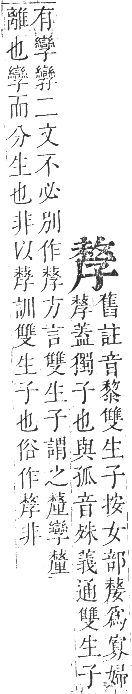 孷
舊註音黎雙生子按女部嫠爲寡婦
孷蓋獨子也與孤音殊義通雙生子
有孿㝈二文不必別作孷方言雙生子謂之釐孿釐
離也孿而分生也非以孷訓雙生子也俗作孷非